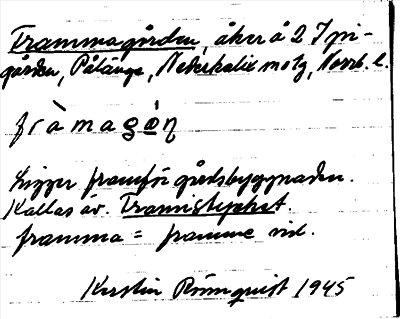 Frammagården, åker å 2 Ipi-
gården, Pålänge, Nederkalix motg, Norrb. l.
fràmagǻṇ
Ligger framför gårdsbyggnaden.
Kallas äv. Framstycket.
framma = framme vid.
Kerstin Rönnquist 1945